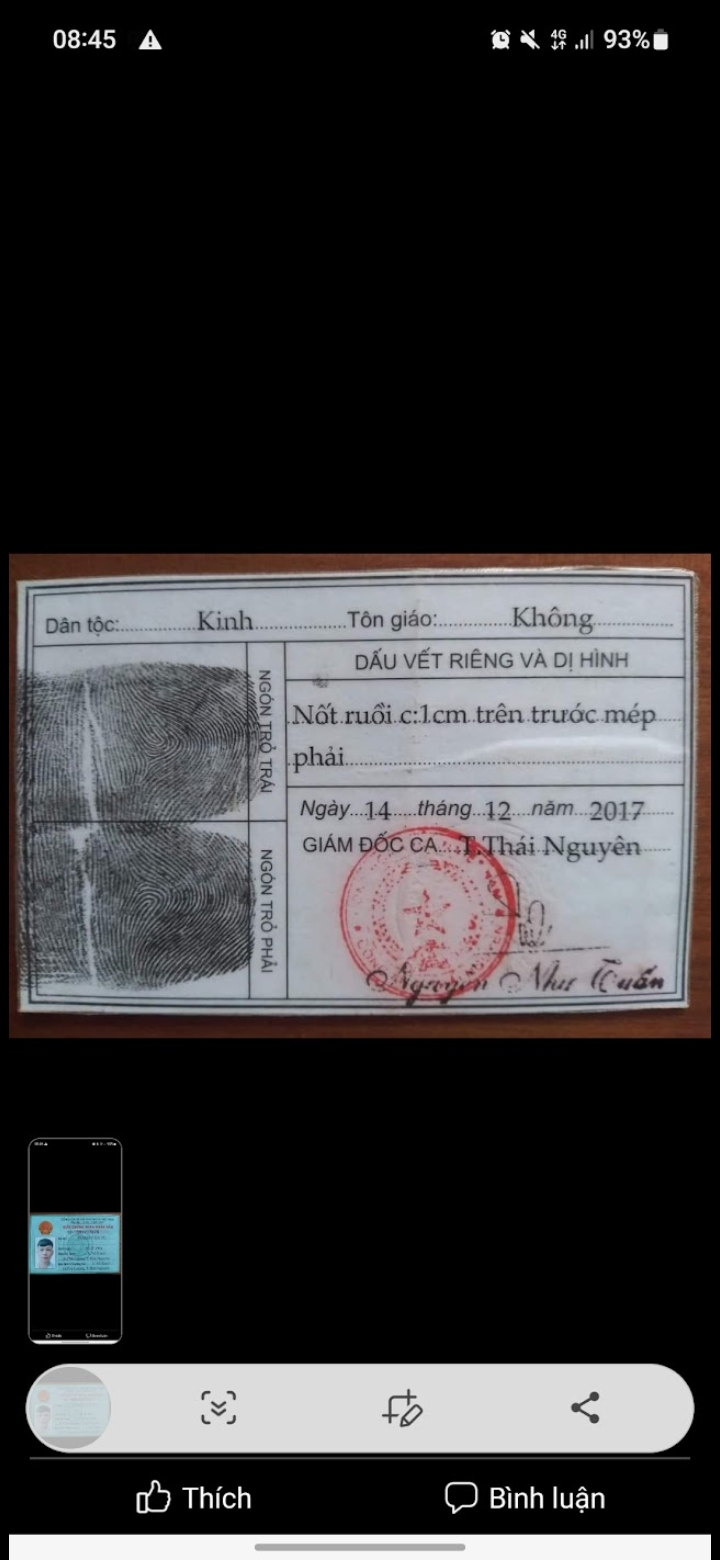 08:45
4G
93%
Dân tộc: Kinh Tôn giáo: Không
DẤU VẾT RIÊNG VÀ DỊ HÌNH
NGÓN TRỎ TRÁI
Nốt ruồi c:1cm trên trước mép
phải
Ngày 14 tháng 12 năm 2017
GIÁM ĐỐC CA T.Thái Nguyên
NGÓN TRỎ PHẢI
Nguyễn Như Tuấn
Thích
Bình luận